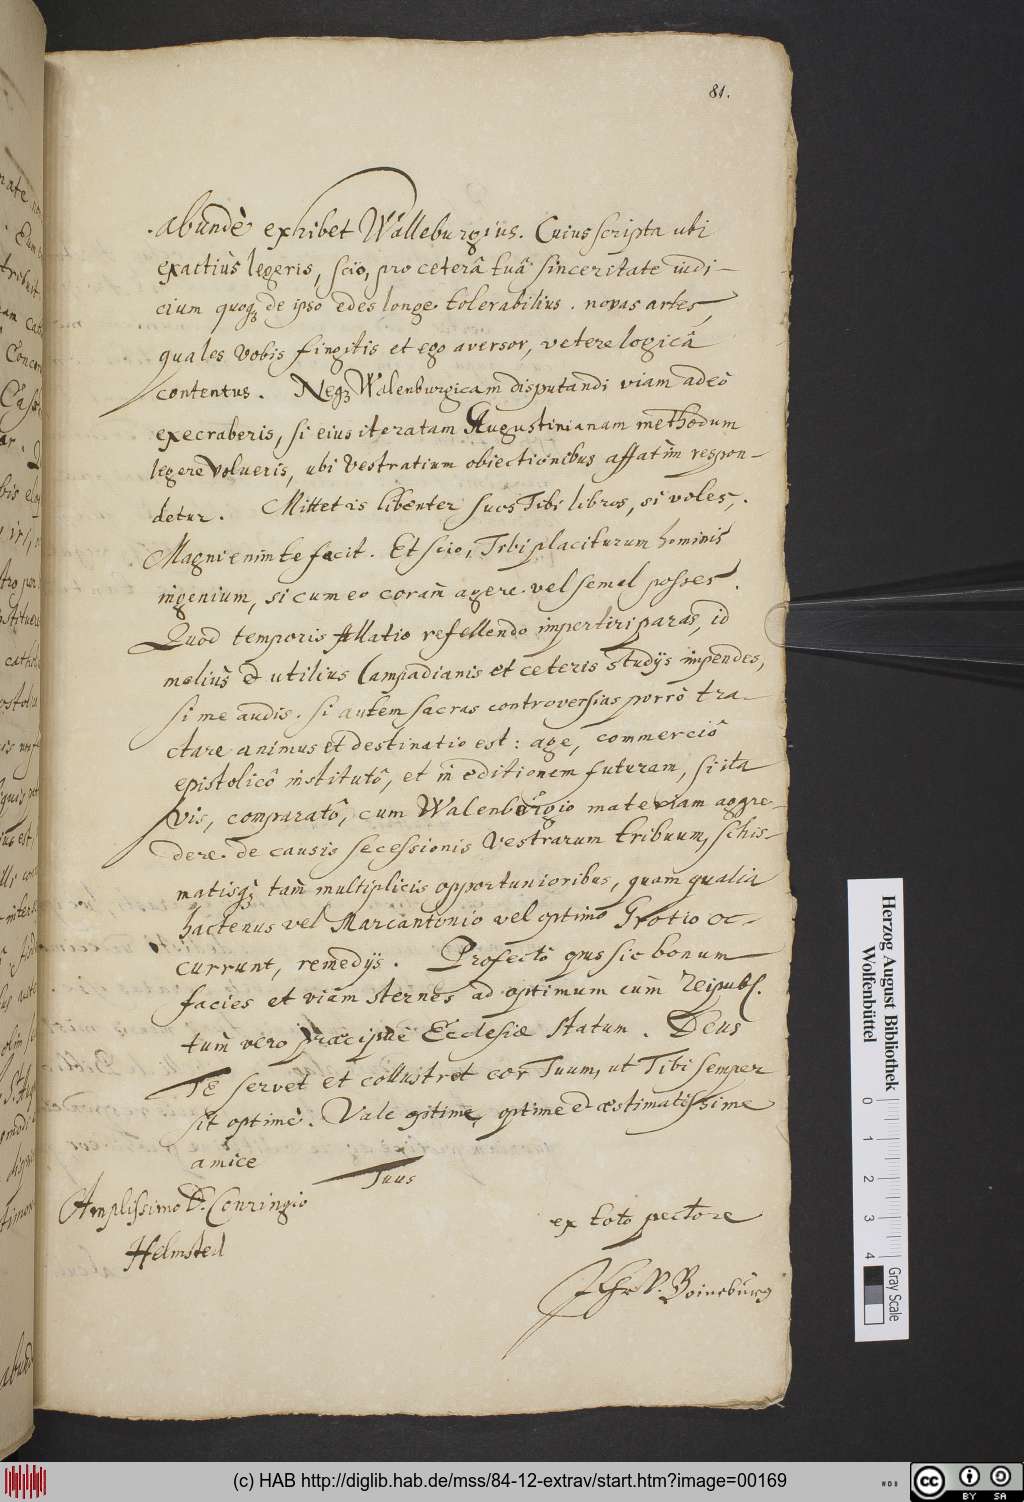 81.
abundè exhibet Walleburgius. Cuius scripta ubi
exactiùs legeris, scio, pro ceterâ tuâ sinceritate iudi-
cium quoq; de ipso edes longe tolerabilius. novas artes,
quales vobis fingitis et ego aversor, vetere logicâ
contentus. Neq; Walenburgicam disputandi viam adeò
execraberis, si eius iteratam Augustinianam methodum
legere volueris, ubi Vestratium obiectionibus affatim respon-
detur. Mittet is libenter suos Tibi libros, si voles,
Magni enim te facit. Et scio, Tibi placiturum hominis
ingenium, si cum eo coram agere vel semel posses.
Quod temporis Allatio refellendo impertiri paras, id
meliùs & utilius Campadianis et ceteris studijs impendes,
si me audis. Si autem sacras controversias porrò tra-
ctare animus et destinatio est: age, commerciô
epistolicô institutô, et in editionem futuram, si ita
vis, comparatô, cum Walenburgio materiam aggre-
dere de causis secessionis Vestrarum tribuum, schis-
matisq; tam multiplicis opportunioribus, quam qualia
hactenus vel Marcantonio vel optimo Grotio oc-
currunt, remedijs. Profectò opus sic bonum
facies et viam sternes ad optimum cùm Reipubl.
tùm vero præcipuè Ecclesiæ statum. Deus
Te servet et collustret cor Tuum, ut Tibi semper
sit optimè. Vale optime, optime et æstimatissime
amice
Tuus
Amplissimo D. Conringio
Helmsted
ex toto pectore
J Chr V. Boineburg
Herzog August Bibliothek
Wolfenbüttel
0 1 2 3 4
Gray Scale
(c) HAB http://diglib.hab.de/mss/84-12-extrav/start.htm?image=00169
cc BY SA